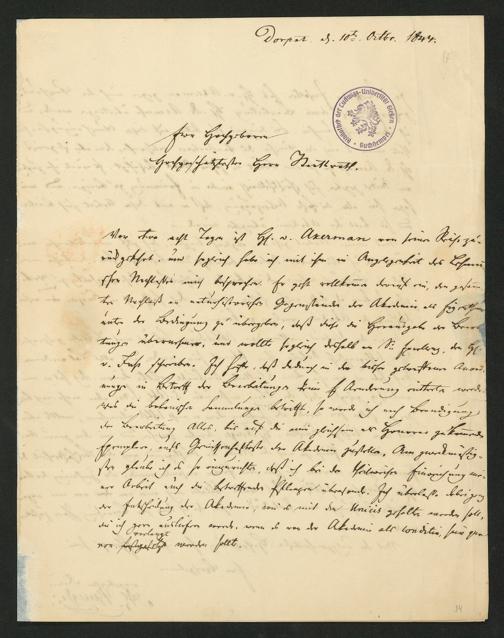 Dorpat d. 10t Octbr. 1844.
Bibliothek der Ludwigs-Universität Gießen
Buchstempel
Ew Hochgeborn
Hochgeschätzter Herr Staatsrath.
Vor etwa acht Tagen ist H. v. Axerman von seiner Reise zu-
rückgekehrt, und sogleich habe ich mit ihm in Angelegenheit des Lehmann
schen Nachlasses mich besprochen. Er geht vollkommen darauf ein, den gesam
ten Nachlass an naturhistorischen Gegenständen der Akademie als Eigenthum
unter der Bedingung zu übergeben, daß diese die Herausgabe der Bear
beitungen übernehme, und wollte sogleich deshalb an
v. Fuss schreiben. Ich hoffe, daß dadurch in den bisher getroffenen Anord
nungen in Betreff der Bearbeitungen keine Änderung eintreten werde.
was die botanische Sammlung betrifft, so werde ich nach Beendigung
der Bearbeitung Alles, bis auf die mir gleichsam als Honorar zukommenden
Exemplare, aufs Gewissenhafteste der Akademie zustellen. Am zweckmäßig-
sten glaube ich es so einzurichten, daß ich bei der theilweisen Einreichung mei-
ner Arbeit auch die betreffenden Pflanzen übersende. Ich überlasse übrigens
der Entscheidung der Akademie, wie es mit den Unicis gehalten werden soll,
die ich gern ausliefern werde, wenn es von der Akademie als conditio sine qua
non verlangt werden sollte.
14